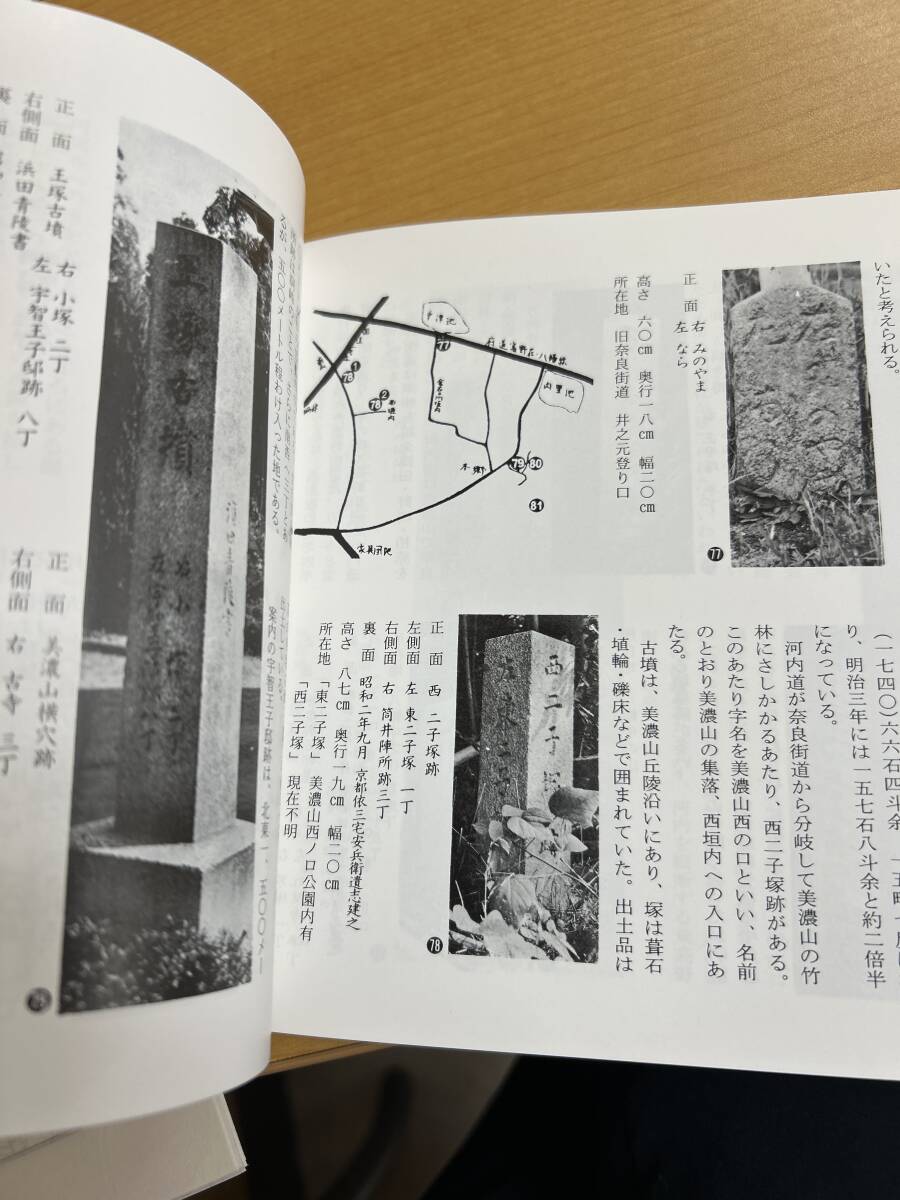 いたと考えられる。
正　面　右　みのやま
　　　　左　なら
高さ　六〇cm　奥行一八cm　幅二〇cm
所在地　旧奈良街道　井之元登り口
77
内里池
77
78
1
2
78
79
80
81
(一七四〇)六六石四斗余
り、明治三年には一五七石八斗余と約二倍半
になっている。
　河内道が奈良街道から分岐して美濃山の竹
林にさしかかるあたり、西二子塚跡がある。
このあたり字名を美濃山西の口といい、名前
のとおり美濃山の集落、西垣内への入口にあ
たる。
　古墳は、美濃山丘陵沿いにあり、塚は葺石
・埴輪・礫床などで囲まれていた。出土品は
西二子塚跡
78
正　面　西　二子塚跡
左側面　左　東二子塚　一丁
右側面　右　筒井陣所跡三丁
裏　面　昭和二年九月　京都依三宅安兵衛遺志建之
高さ　八七cm　奥行一九cm　幅二〇cm
所在地　「西二子塚」　美濃山西ノ口公園内有
　　　　「東二子塚」　現在不明
五〇〇メートル程わけ入った地である。
案内の宇智王子邸跡は、北東一、五〇〇メー
正　面　王塚古墳　右　小塚　二丁
　　　　　　　　　左　宇智王子邸跡　八丁
右側面　浜田青陵書
正　面　美濃山横穴跡
右側面　右　古寺　三丁